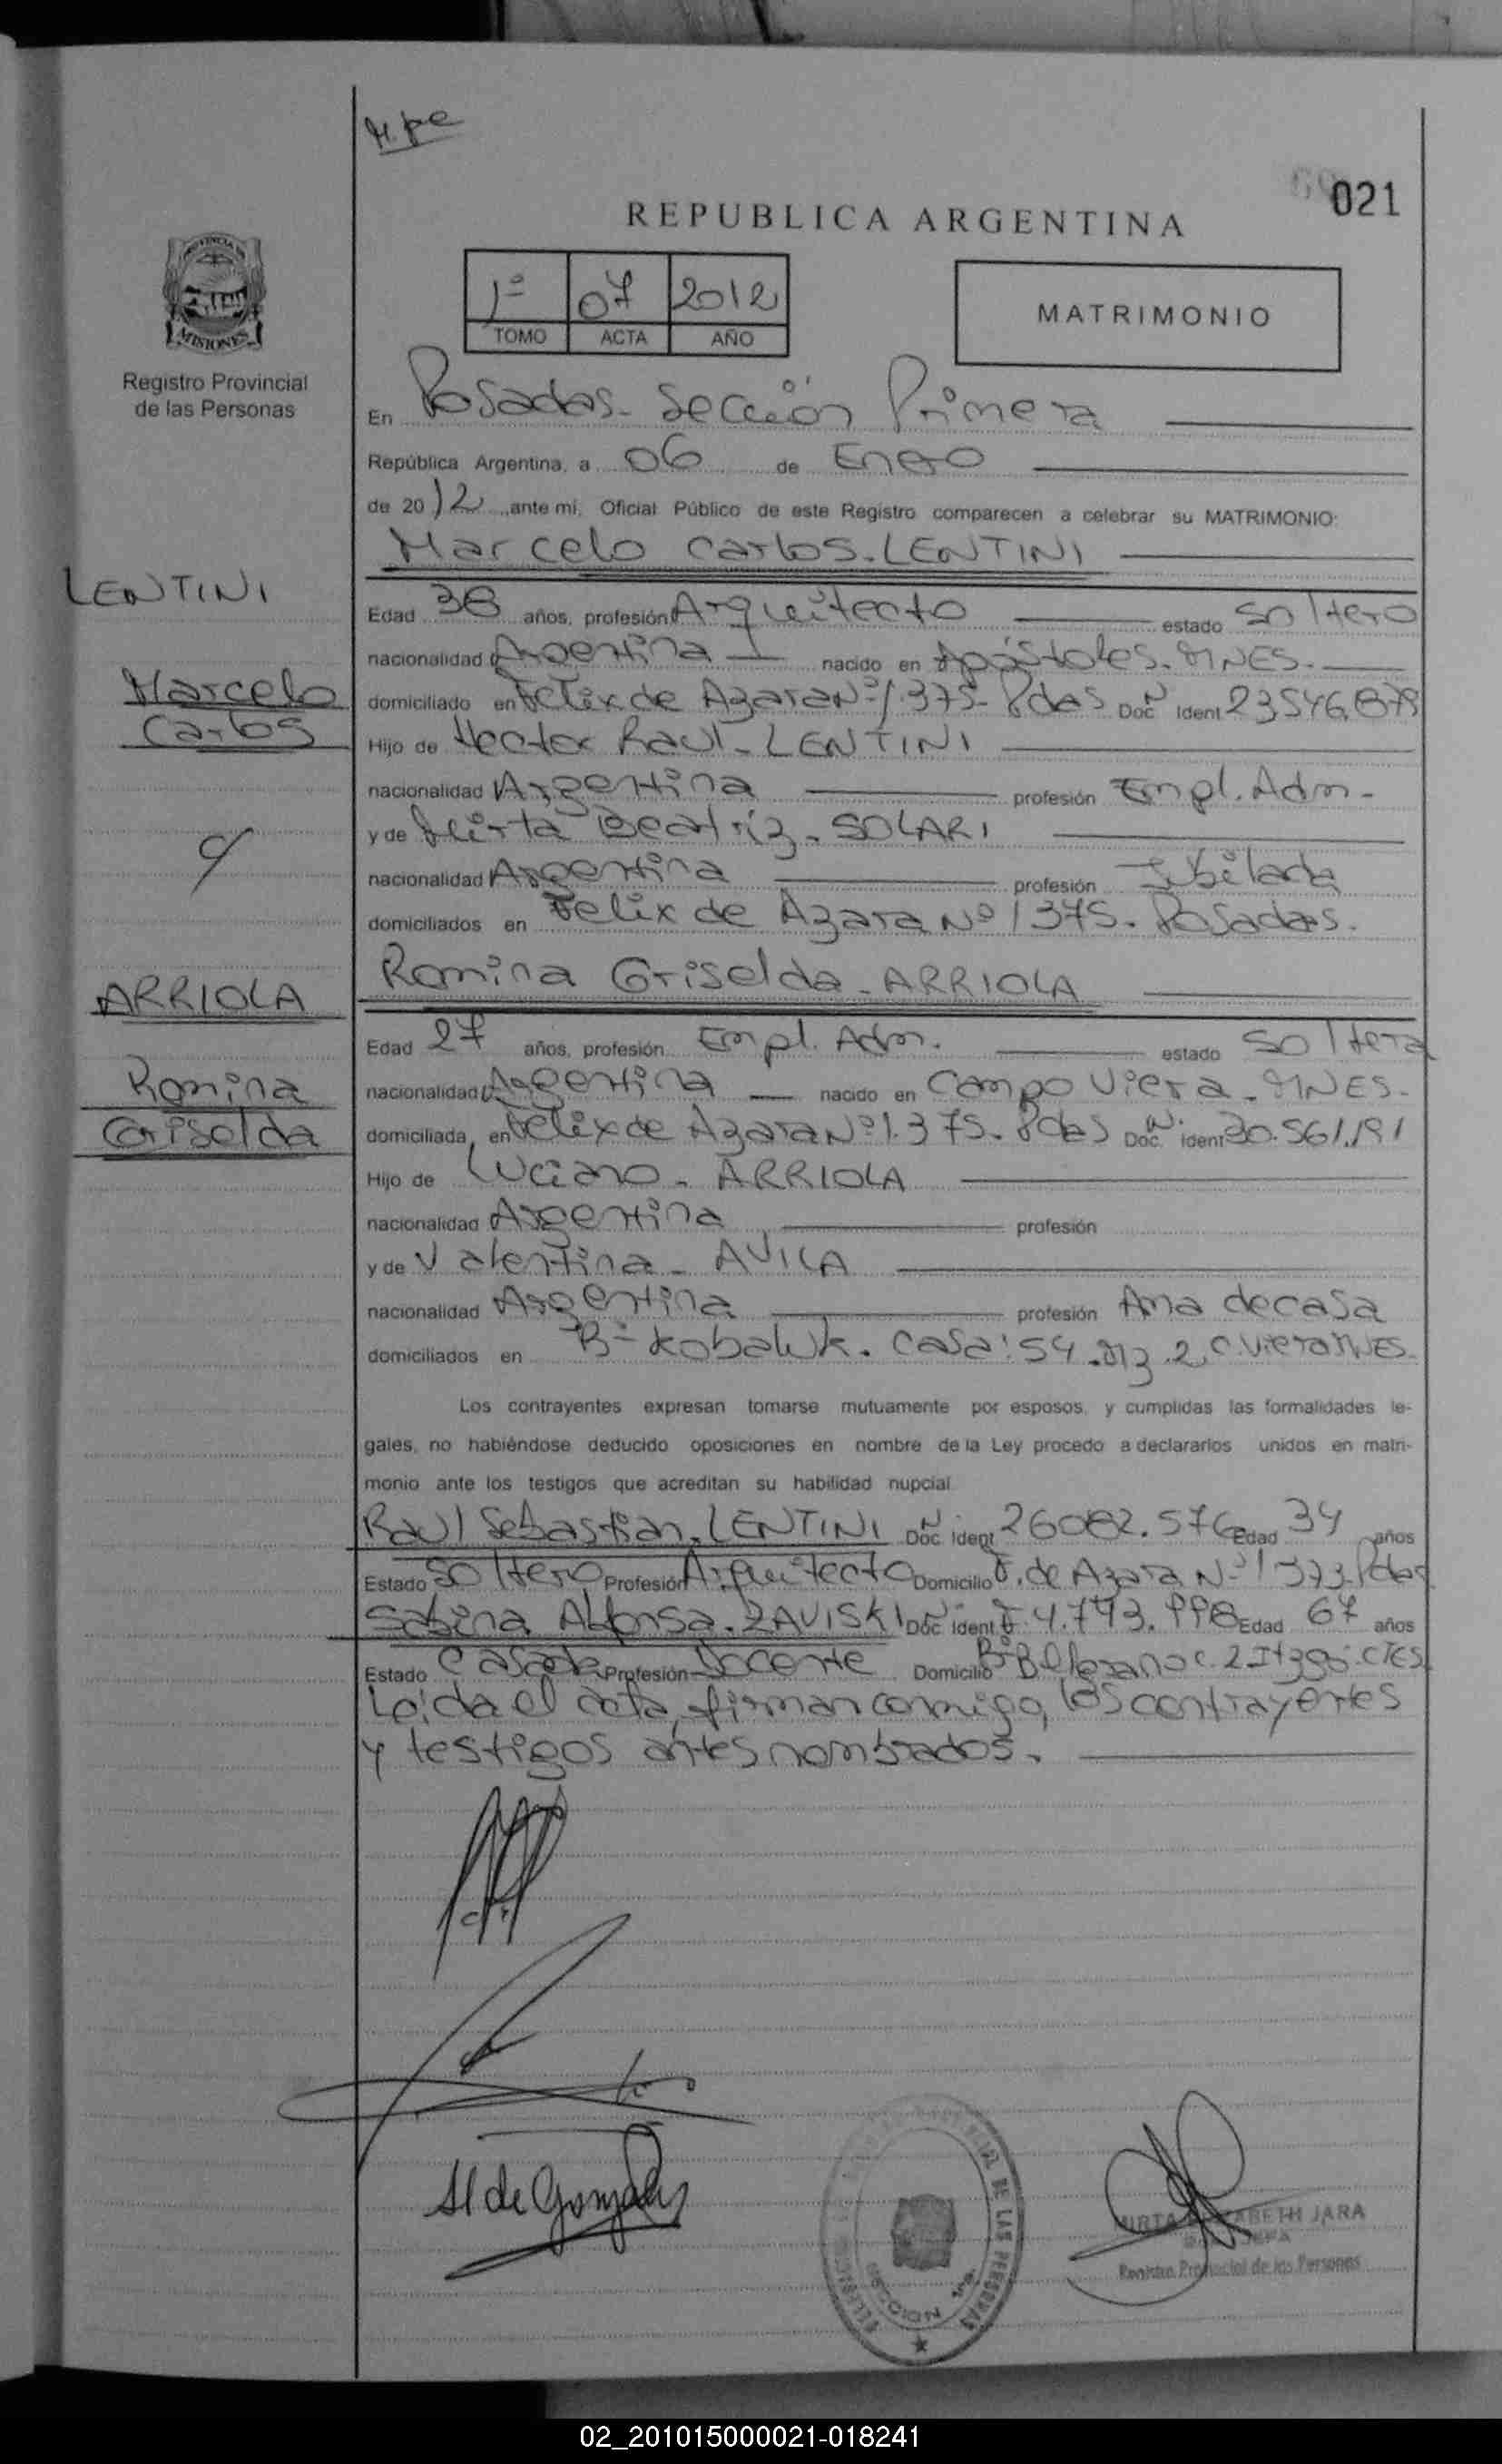 M.pe
021
REPUBLICA ARGENTINA
1º 07 2012
TOMO ACTA AÑO
MATRIMONIO
PROVINCIA DE
MISIONES
Registro Provincial
de las Personas
En Posadas - Sección Primera
República Argentina, a 06 de Enero
de 2012 ante mí, Oficial Público de este Registro comparecen a celebrar su MATRIMONIO:
Marcelo Carlos - LENTINI
LENTINI
Marcelo
Carlos
Edad 38 años, profesión Arquitecto estado soltero
nacionalidad Argentina nacido en Apóstoles - MNES.
domiciliado en Felix de Azara Nº 1.375 - Pdas Doc. Nº Ident 23546.879
Hijo de Hector Raul - LENTINI
nacionalidad Argentina profesión Empl. Adm -
y de Mirta Beatriz - SOLARI
c/
nacionalidad Argentina profesión Jubilada
domiciliados en Felix de Azara Nº 1375 - Posadas.
Romina Griselda - ARRIOLA
ARRIOLA
Romina
Griselda
Edad 27 años, profesión Empl. Adm. estado soltera
nacionalidad Argentina nacido en Campo Viera - MNES.
domiciliada en Felix de Azara Nº 1.375 - Pdas Doc. Nº ident 30.561.191
Hijo de Luciano - ARRIOLA
nacionalidad Argentina profesión
y de Valentina - AVILA
nacionalidad Argentina profesión Ama de casa
domiciliados en Bº Kobaluk. Casa: 54. Mz. 2. C. Viera MNES.
Los contrayentes expresan tomarse mutuamente por esposos, y cumplidas las formalidades le-
gales, no habiéndose deducido oposiciones en nombre de la Ley procedo a declararlos unidos en matri-
monio ante los testigos que acreditan su habilidad nupcial
Raul Sebastian. LENTINI Doc. Nº ident 26082.576 Edad 34 años
Estado soltero Profesión Arquitecto Domicilio F. de Azara Nº 1373 Pdas
Sabina Alfonsa. ZAVISKI Doc. Nº ident F 4.743.998 Edad 67 años
Estado Casada Profesión Docente Domicilio Bº Belgrano c. 2 CTES
Leída el acta, firman conmigo, los contrayentes
y testigos antes nombrados.
Al de Gonzalez
DE LAS PERSONAS
SECCION 1ra.
MIRTA ELIZABETH JARA
Registro Provincial de las Personas
02_201015000021-018241